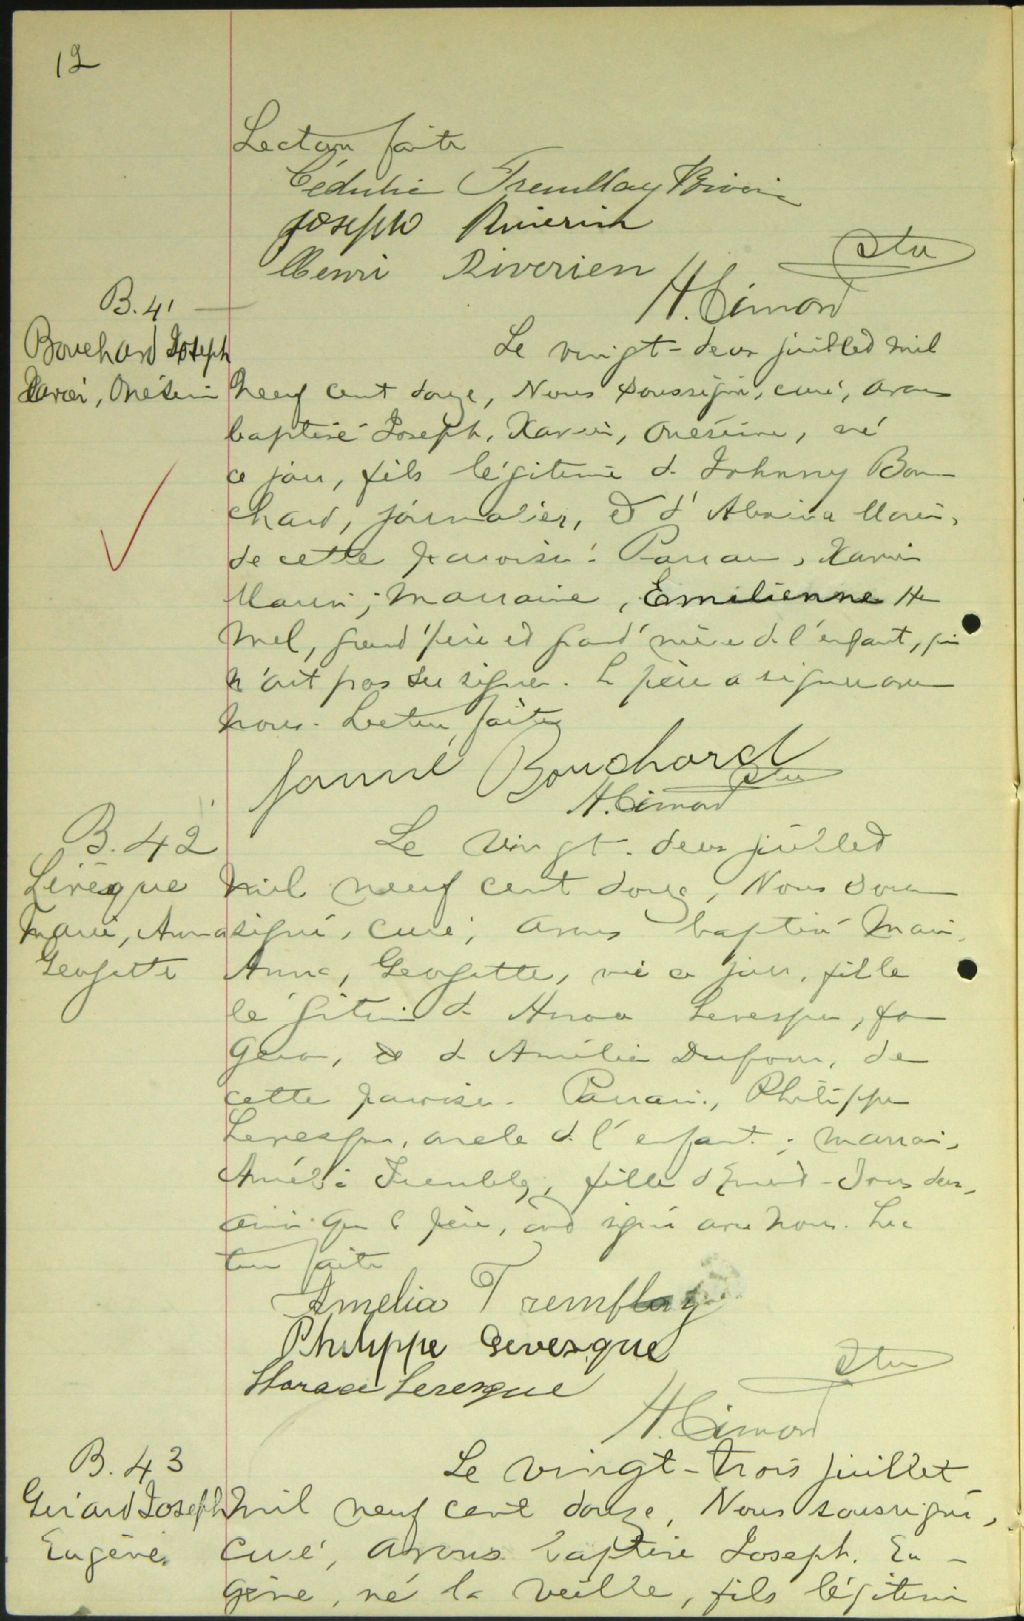 12
Lecture faite
Cédulie Tremblay Riverin
Joseph Riverin
Henri Riverien
H. Cimon ptre
B. 41
Bouchard Joseph
Xavier, Onésime
Le vingt-deux juillet mil
neuf cent douze, Nous soussigné, curé, avons
baptisé Joseph, Xavier, Onésime, né
ce jour, fils légitime de Johnny Bou-
chard, journalier, et d'
de cette paroisse. Parrain, Xavier
marraine, Emilienne Ha
mel, grand'père et grand'mère de l'enfant, qui
n'ont pas su signer. Le père a signé avec
nous. Lecture faite
Bouchard
H. Cimon ptre
B. 42
Lévèque
Marie, Anna
Georgette
Le vingt-deux juillet
mil neuf cent douze, Nous sous
signé, curé, avons baptisé Marie,
Anna, Georgette, née ce jour, fille
légitime de Levesque, for
geron, et de Amélie Dufour, de
cette paroisse. Parrain, Philippe
Levesque, oncle de l'enfant; marraine,
Amélie Tremblay, fille d' Tous deux,
ainsi que le père, ont signé avec nous. Lec
ture faite
Amelia Tremblay
Philippe Levesque
Horace Levesque
H. Cimon ptre
B. 43
Gérard Joseph
Eugène
Le vingt-trois juillet
mil neuf cent douze, Nous soussigné,
curé, avons baptisé Joseph, Eu-
gène, né la veille, fils légitime